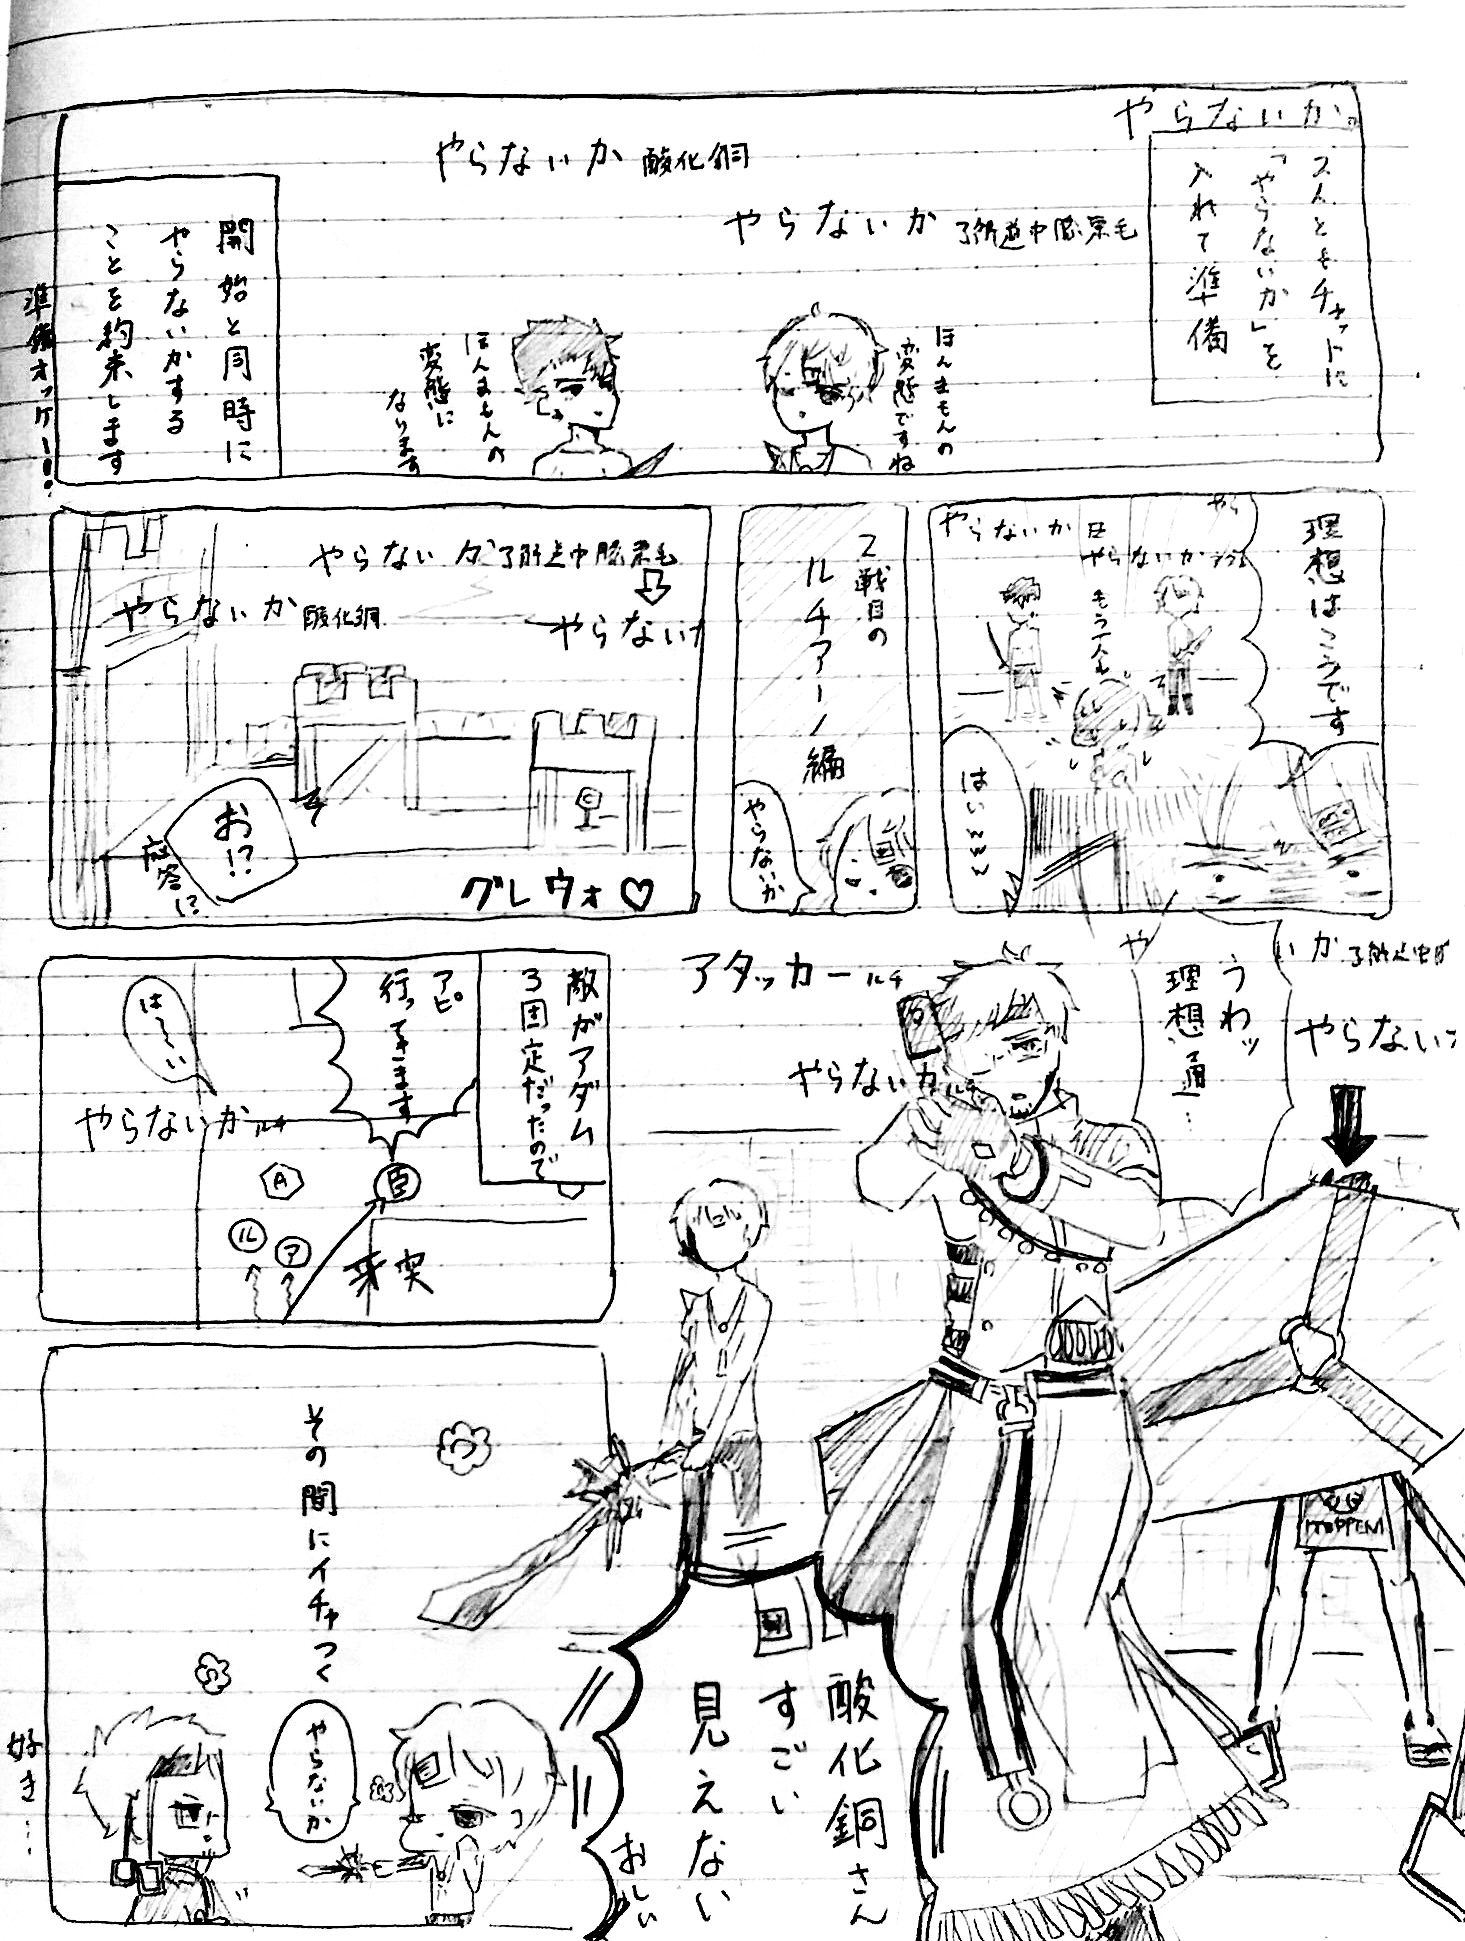 やらないか。
やらないか
入れて準備
やらないか 了解道中膝栗毛
やらないか 酸化銅
ほんまもんの
変態ですね
ほんまもんの
変態に
なります
開始と同時に
やらないかする
ことを約束します
準備オッケー!!
理想はこうです
やら
やらないか
やらないか
もう一人も
はいwww
2戦目の
ルチアーノ編
やらないか
やらないか 了解道中膝栗毛
やらない
やらないか 酸化銅
お!?
応答に
グレウォ♡
うわッ
理想通…
いか
やらない
アタッカー ルチ
やらないか ルチ
敵がアダム
3固定だったので
アピ
行ってきます
は～い
やらないか ルチ
A
臣
ル
ア
TOPPEN
酸化銅さん
すごい
見えない
おしい
その間にイチャつく
やらないか
好き…